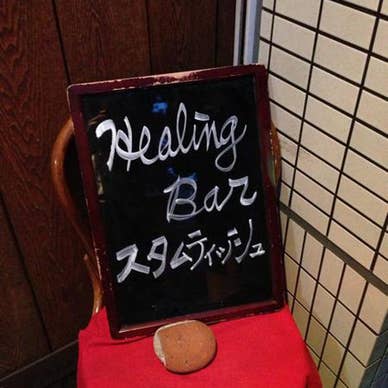 Healing
Bar
スタムティッシュ